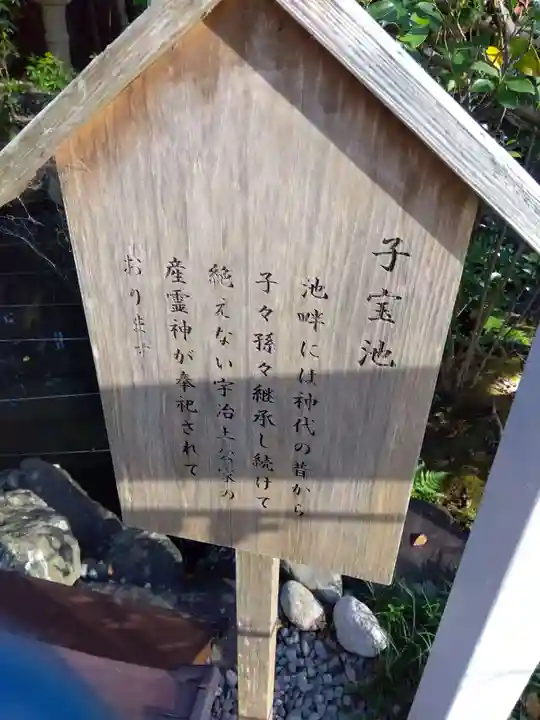 子宝池
池畔には神代の昔から
子々孫々継承し続けて
絶えない宇治土公家の
産霊神が奉祀されて
おります